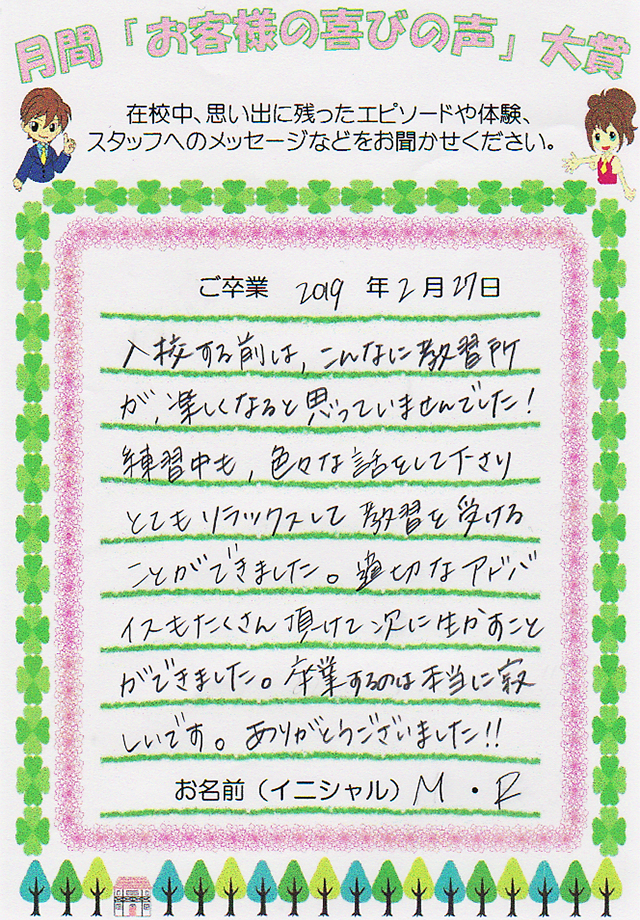 月間「お客様の喜びの声」大賞
在校中、思い出に残ったエピソードや体験、
スタッフへのメッセージなどをお聞かせください。
ご卒業 2019 年 2 月 27日
入校する前は、こんなに教習所
が、楽しくなると思っていませんでした!
練習中も、色々な話をして下さり
とてもリラックスして教習を受ける
ことができました。適切なアドバ
イスもたくさん頂けて次に生かすこと
ができました。卒業するのは本当に寂
しいです。ありがとうございました!!
お名前(イニシャル)M・R